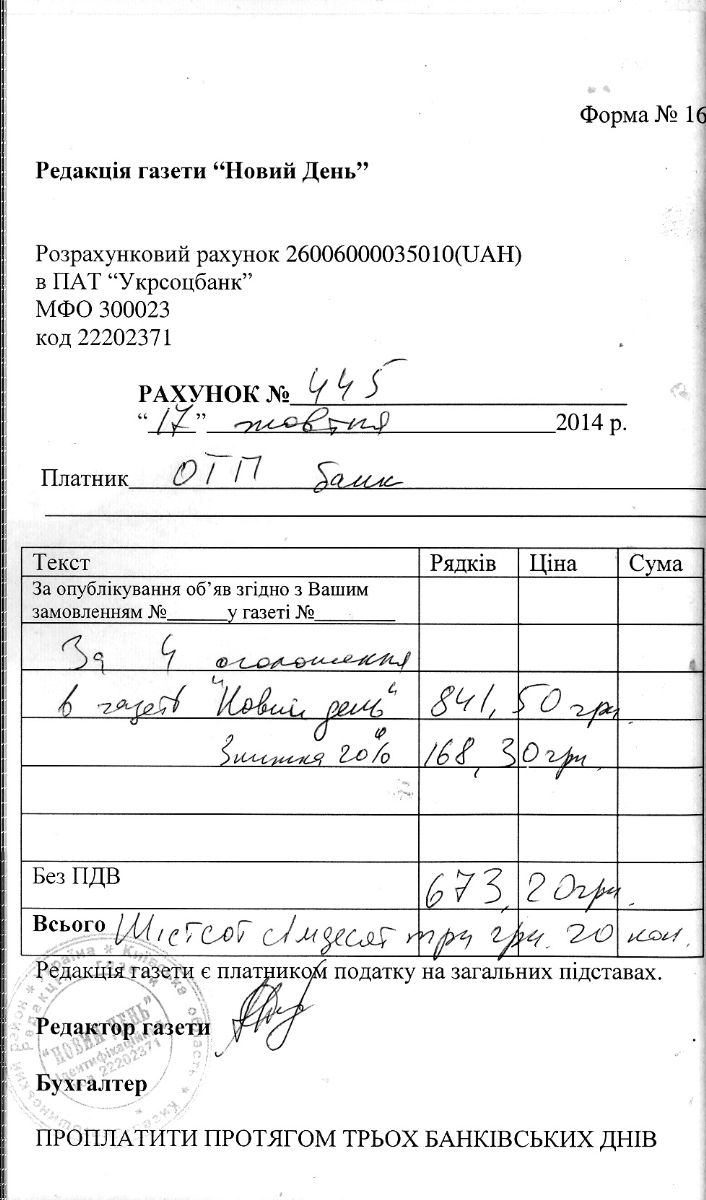 Форма № 16
Редакція газети “Новий День”
Розрахунковий рахунок 26006000035010(UAH)
в ПАТ “Укрсоцбанк”
МФО 300023
код 22202371
РАХУНОК № 445
“ 17 ” жовтня 2014 р.
Платник ОТП банк
Текст Рядків Ціна Сума
За опублікування об’яв згідно з Вашим
замовленням №______у газеті №________
За 4 оголошення
в газеті "Новий день" 841,50 грн.
Знижка 20% 168,30 грн.
Без ПДВ 673,20 грн.
Всього Шістсот сімдесят три грн. 20 коп.
Редакція газети є платником податку на загальних підставах.
Редактор газети
Бухгалтер
ПРОПЛАТИТИ ПРОТЯГОМ ТРЬОХ БАНКІВСЬКИХ ДНІВ
Україна * Київська область *
Редакція газети
"НОВИЙ ДЕНЬ"
Ідентифікаційний
22202371